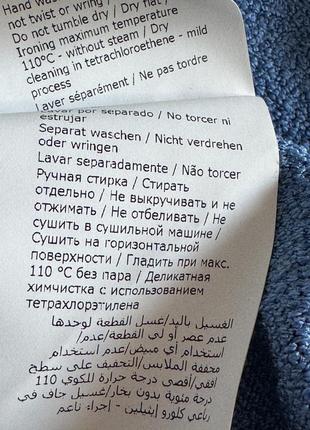 Hand was
not twist or wring / Do
Do not tumble dry / Dry flat /
Ironing maximum temperature
110°C - without steam / Dry
cleaning in tetrachloroethene - mild
process
Laver séparément / Ne pas tordre
Lavar por separado / No torcer ni
estrujar
Separat waschen / Nicht verdrehen
oder wringen
Lavar separadamente / Não torcer
Ручная стирка / Стирать
отдельно / Не выкручивать и не
отжимать / Не отбеливать / Не
сушить в сушильной машине /
Сушить на горизонтальной
поверхности / Гладить при макс.
110 °C без пара / Деликатная
химчистка с использованием
тетрахлорэтилена
الغسيل باليد/غسل القطعة لوحدها
/عدم عصر أو لي القطعة/عدم
استخدام أي مبيض/عدم استخدام
مجففة الملابس/التجفيف على سطح
أفقي/أقصى درجة حرارة للكوي 110
درجة مئوية بدون بخار/غسيل جاف في
رباعي كلورو إيثيلين - إجراء ناعم